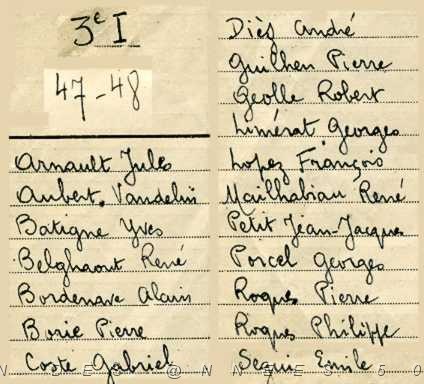 3e I
47-48
Arnault Jules
Aubert Vandelin
Batigne Yves
Belghaout René
Bordenave Alain
Borie Pierre
Coste Gabriel
Diès André
Guilhen Pierre
Geolle Robert
Limérat Georges
Lopez François
Mailhabiau René
Petit Jean-Jacques
Porcel Georges
Roques Pierre
Roques Philippe
Seguin Emile